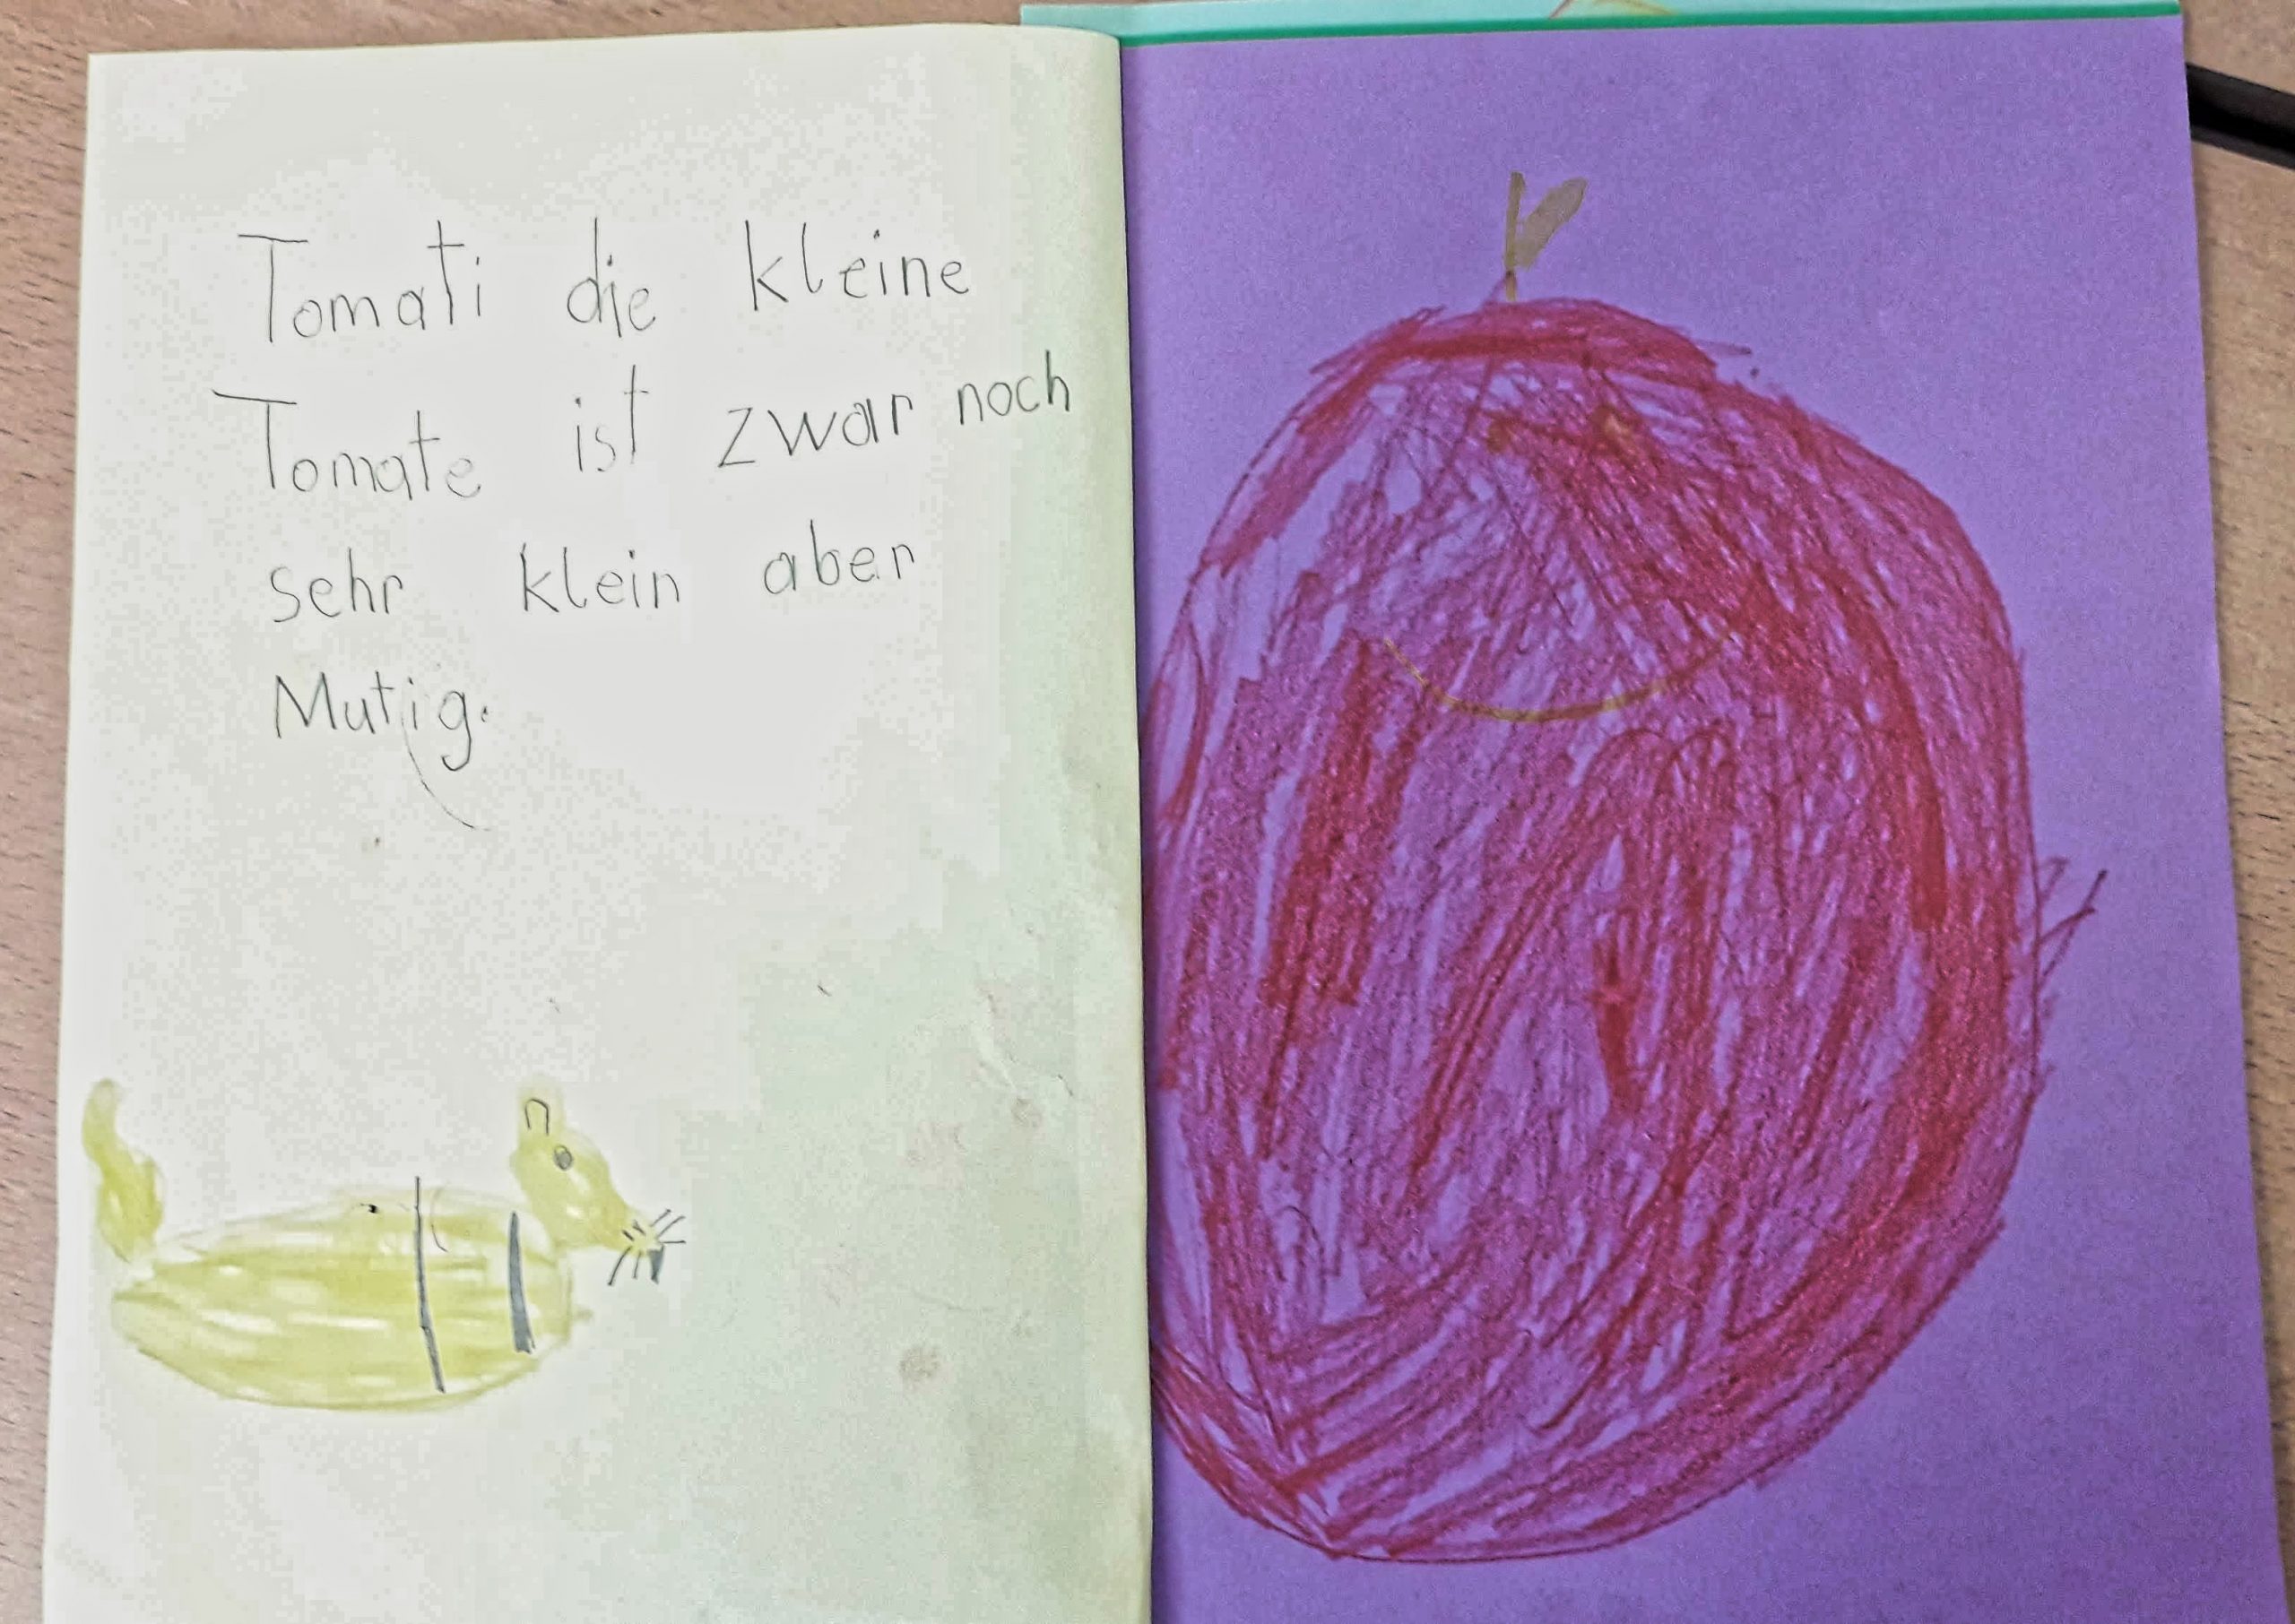 Tomati die kleine
Tomate ist zwar noch
sehr klein aber
Mutig.